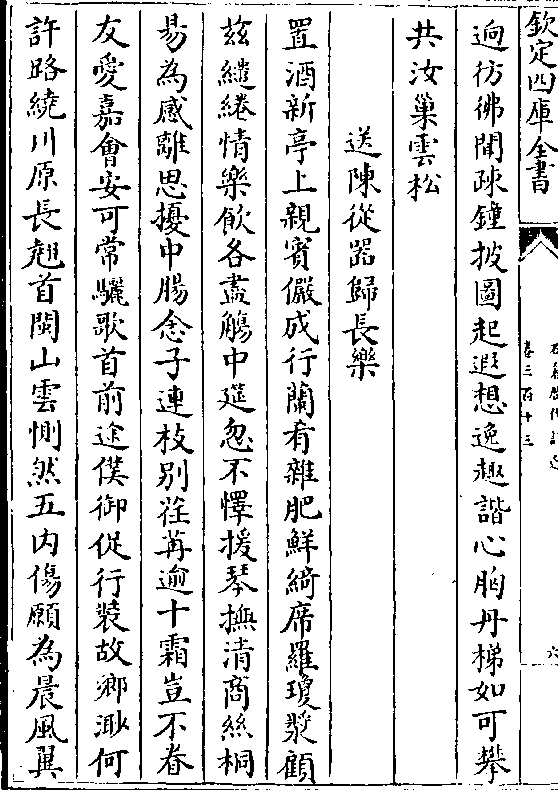 欽定四庫全書
卷三百十三
逈彷彿聞疎鐘披圖起遐想逸趣諧心胸丹梯如可攀
共汝巢雲松
送陳從器歸長樂
置酒新亭上親賓儼成行蘭肴雜肥鮮綺席羅瓊漿顧
兹繾綣情樂飲各盡觴中筵忽不懌援琴撫清商絲桐
易為感離思擾中腸念子連枝别荏苒逾十霜豈不眷
友愛嘉會安可常驪歌首前途僕御促行裝故鄉渺何
許路繞川原長翹首閩山雲惻然五内傷願為晨風翼